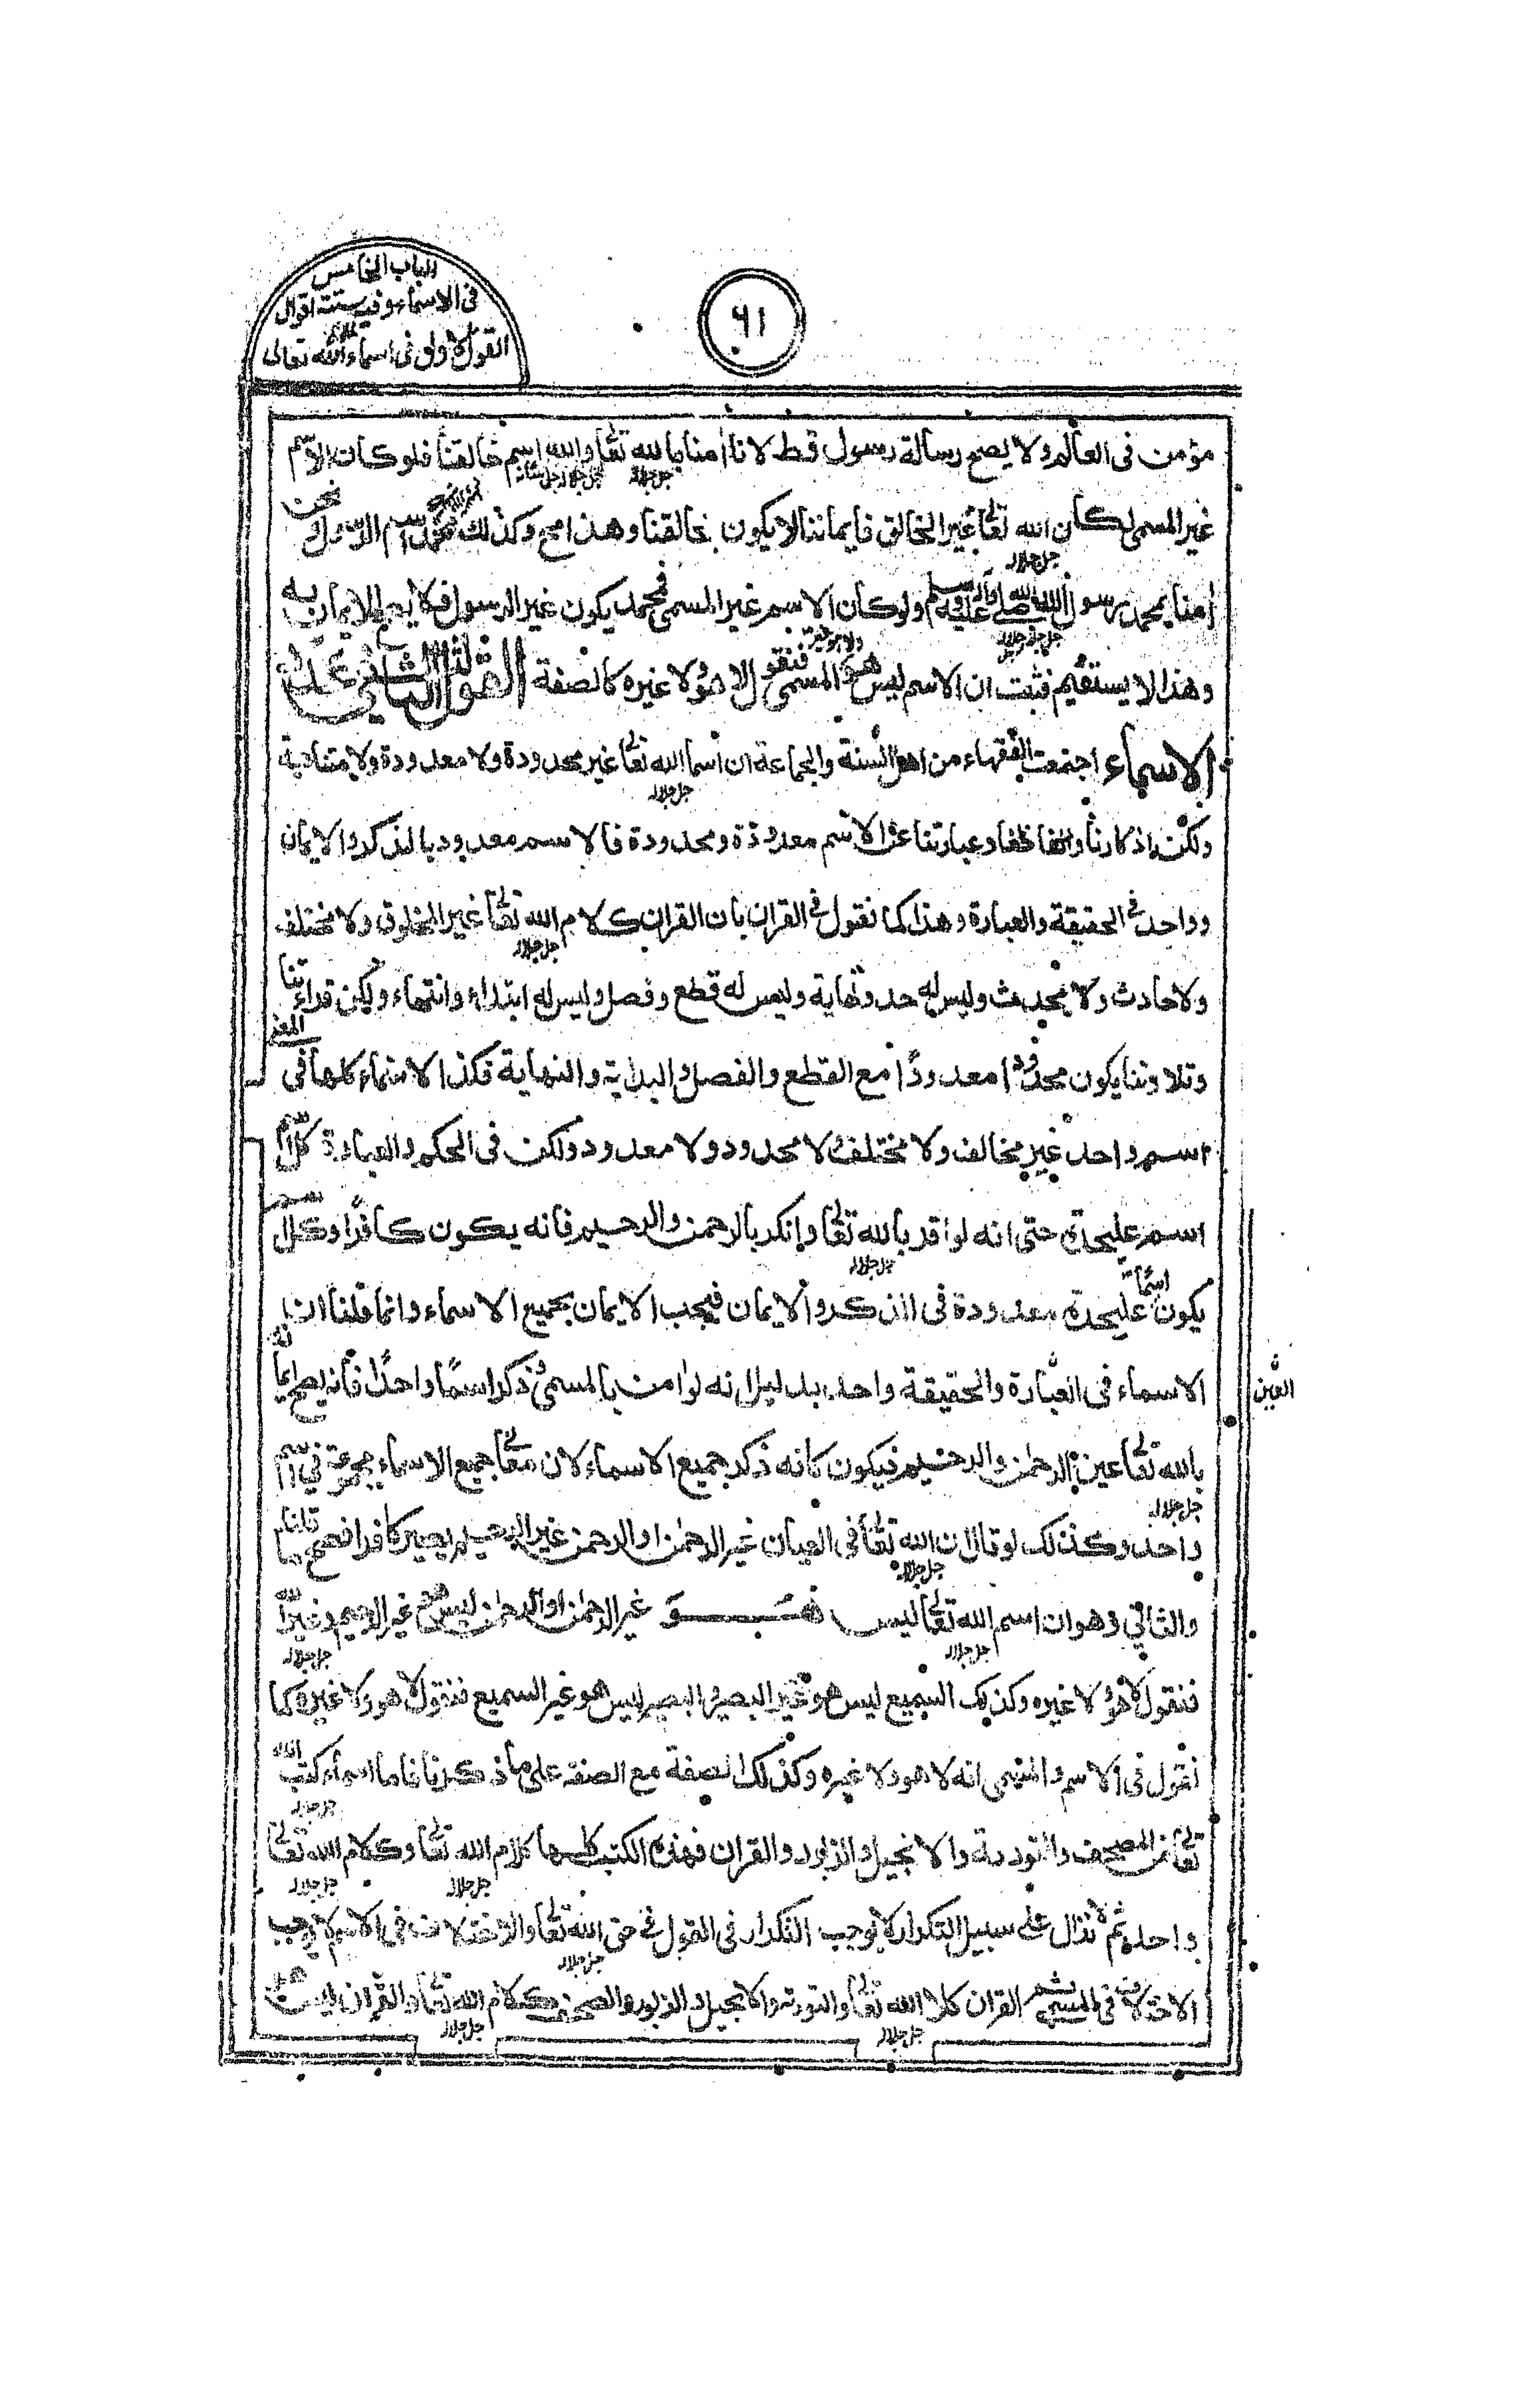 الباب الخامس
فى الاسماء وفيه ستة اقوال
القول الاول فى اسماء الله تعالى
٩١
مؤمن فى العالم ولا يصح رسالة رسول قط لانا امنا بالله تعا والله اسم خالقنا فلو كان الاسم
غير المسمى لكان الله تعا غير الخالق فايماننا لا يكون بخالقنا وهذا مح وكذلك محمد اسم الرسول نحن
امنا بمحمد رسول الله صلى الله عليه وسلم ولو كان الاسم غير المسمى فمحمد يكون غير الرسول فلا يصح الايمان به
وهذا لا يستقيم فثبت ان الاسم ليس هو المسمى ولا هو غيره فنقول لا هو ولا غيره كالصفة القول الثانى عدد
الاسماء اجتمعت الفقهاء من اهل السنة والجماعة ان اسما الله تعا غير محدودة ولا معدودة ولا متناهية
ولكن اذكارنا والفاظنا وعبارتنا عن الاسم معدودة ومحدودة فالاسم معدود بالذكر والايمان
وواحد فى الحقيقة والعبارة وهذا كما نقول فى القران بان القران كلام الله تعا غير المخلوق ولا مختلف
ولا حادث ولا محدث وليس له حد ونهاية وليس له قطع وفصل وليس له ابتداء وانتهاء ولكن قراءتنا
وتلاوتنا يكون محدودا معدودًا مع القطع والفصل والبداية والنهاية فكذا الاسماء كلها فى المعنى
اسم واحد غير مخالف ولا مختلف ولا محدود ولا معدود ولكن فى الحكم والعبادة كل اسم
اسم عليحدة حتى انه لو اقر بالله تعا وانكر بالرحمن والرحيم فانه يكون كافرًا وكل اسم
يكون اسمًا عليحدة معدودة فى الذكر والايمان فيجب الايمان بجميع الاسماء وانما قلنا ان
الاسماء فى العبارة والحقيقة واحد بدليل انه لو امن بالمسمى وذكر اسمًا واحدًا فانه يصح ايمانه
العين
بالله تعا عين الرحمن والرحيم فيكون كانه ذكر جميع الاسماء لان معا جميع الاسماء مجموعة فى اسم
واحد وكذلك لو قال ان الله تعا فى العيان غير الرحمن او الرحمن غير الرحيم يصير كافرا فصح ما قلنا
والثانى وهو ان اسم الله تعا ليس هــو غير الرحمن او الرحمن ليس هو غير الرحيم وغير الله
فنقول لا هو ولا غيره وكذلك السميع ليس هو غير البصير والبصير ليس هو غير السميع فنقول لا هو ولا غيره كما
نقول فى الاسم والمسمى انه لا هو ولا غيره وكذلك الصفة مع الصفة على ما ذكرنا فاما اسماء كتب الله
تعا من المصحف والتورىة والانجيل والزبور والقران فهذه الكتب كلها كلام الله تعا وكلام الله تعا
واحد ثم لا نزال على سبيل التكرار لا يوجب التكرار فى القول فى حق الله تعا والاختلاف فى الاسم لا يوجب
الاختلاف فى المسمى القران كلام الله تعا والتورية والانجيل والزبور والصحف كلام الله تعا والقران ليست